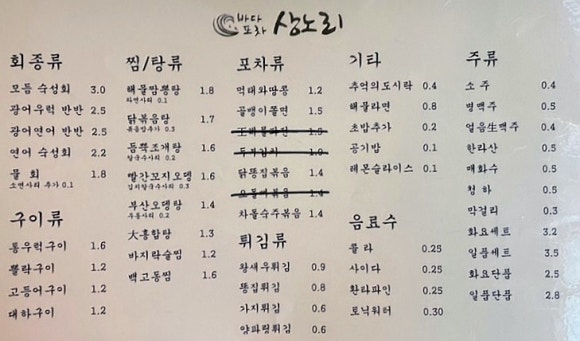 바다
포차
상노리
회종류
모듬 숙성회 3.0
광어우럭 반반 2.5
광어연어 반반 2.5
연어 숙성회 2.2
물 회 1.8
소면사리 추가 0.1
구이류
통우럭구이 1.6
뽈락구이 1.2
고등어구이 1.2
대하구이 1.2
찜/탕류
해물짬뽕탕 1.8
라면사리 0.1
닭볶음탕 1.7
볶음밥추가 0.3
듬뿍조개탕 1.6
칼국수추가 0.2
빨간꼬지오뎅 1.6
김치칼국수사리 0.3
부산오뎅탕 1.4
우동사리 0.2
大홍합탕 1.3
바지락술찜 1.2
백고동찜 1.6
포차류
먹태와땅콩 1.2
골뱅이쫄면 1.5
두부김치 1.0
닭똥집볶음 1.4
1.4
차돌숙주볶음 1.4
튀김류
왕새우튀김 0.9
똥집튀김 0.8
가지튀김 0.6
양파링튀김 0.6
기타
추억의도시락 0.4
해물라면 0.8
초밥추가 0.2
공기밥 0.1
레몬슬라이스 0.1
음료수
콜라 0.25
사이다 0.25
환타파인 0.25
토닉워터 0.30
주류
소 주 0.4
병맥주 0.5
얼음生맥주 0.4
한라산 0.5
매화수 0.5
청 하 0.5
막걸리 0.3
화요세트 3.2
일품세트 3.5
화요단품 2.5
일품단품 2.8